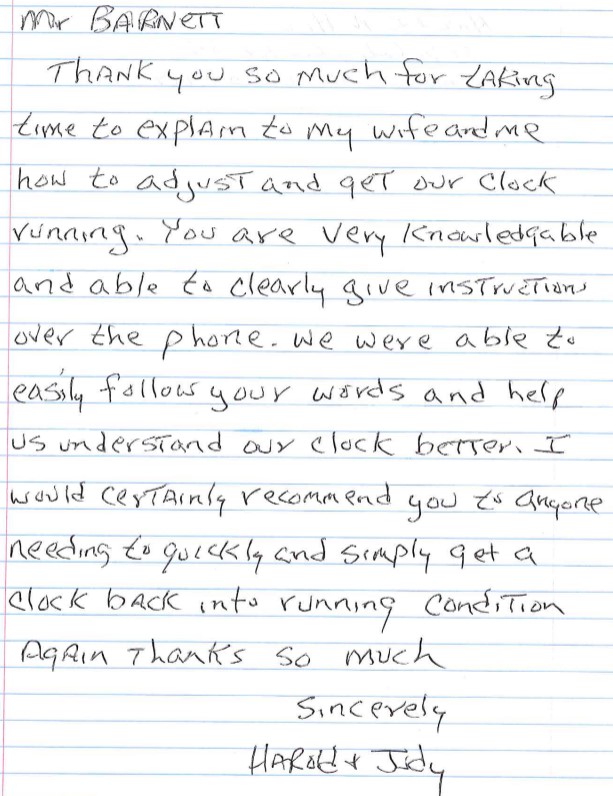 Mr BARNETT
THANK you so much for tAKing
time to explAin to my wife and me
how to adjusT and geT our clock
running. You are very knowledgable
and able to clearly give insTrucTions
over the phone. We were able to
easily follow your words and help
us undersTand our clock beTTer. I
would cerTAinly recommend you to anyone
needing to quickly and simply get a
clock bAcK into running condiTion
AgAin ThanKs so much
Sincerely
HAROld + Judy